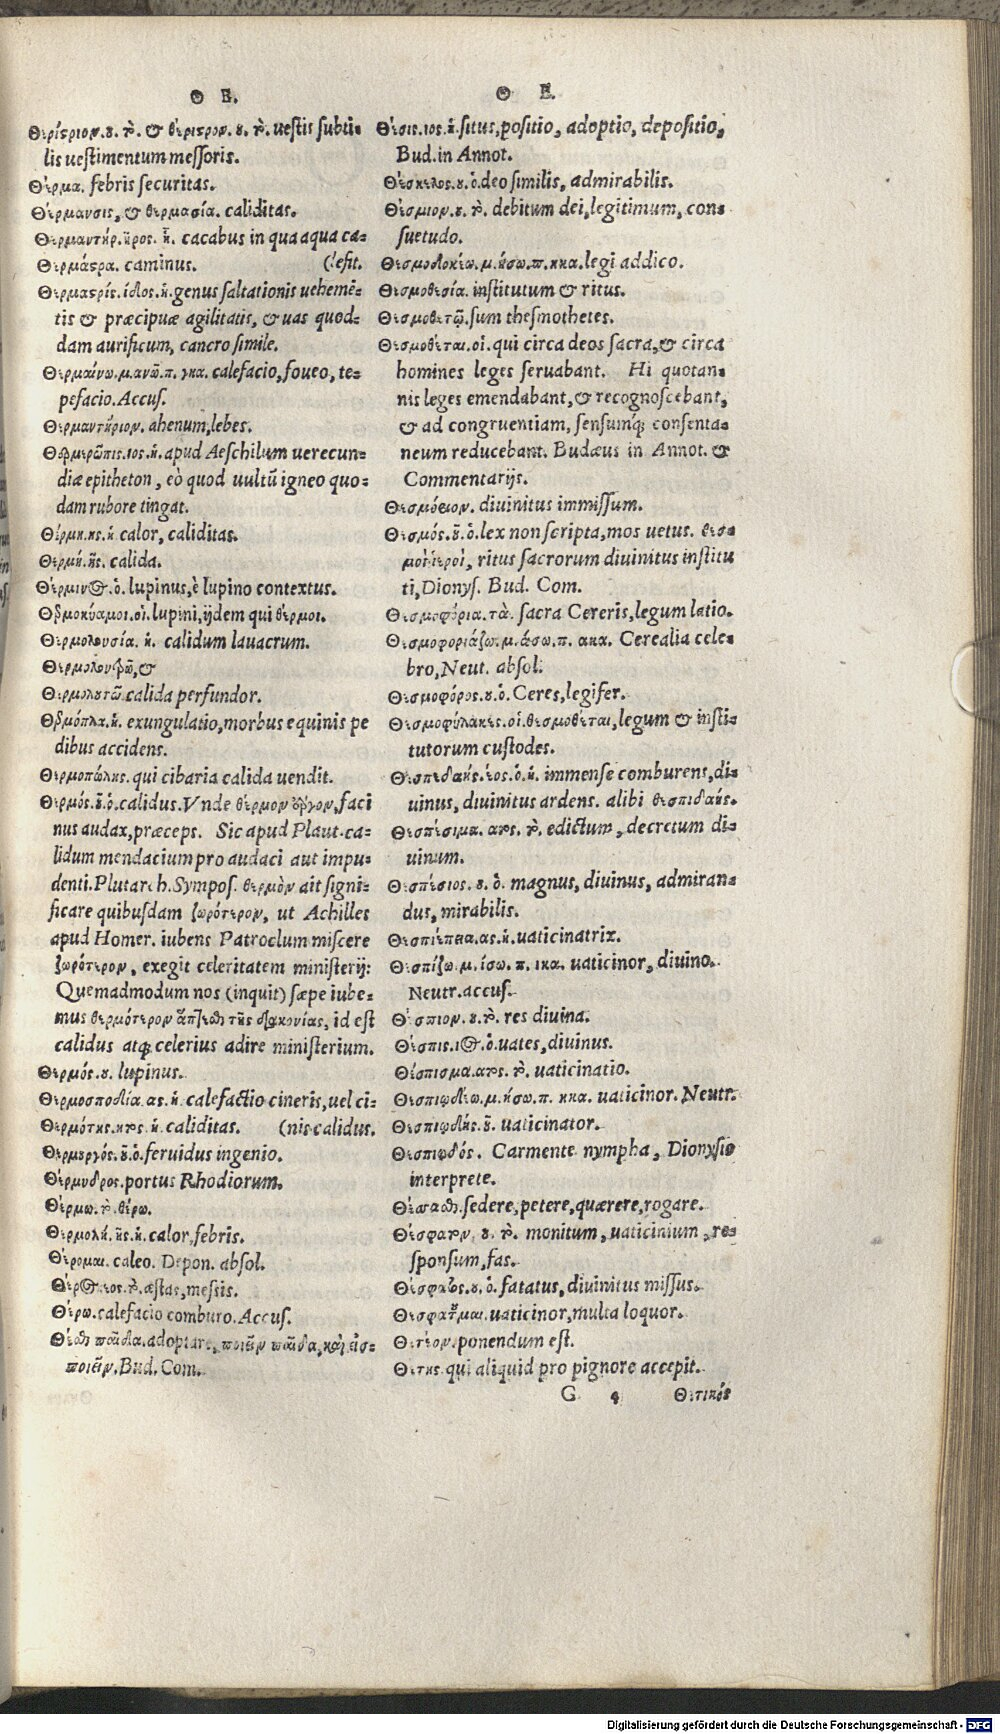 Θ Ε.
Θερίστριον.ου.τὸ. & θέριστρον.ου.τὸ. uestis subti-
lis uestimentum messoris.
Θέρμα. febris securitas.
Θέρμανσις, & θερμασία. caliditas.
Θερμαντήρ.ῆρος.ὁ. cacabus in qua aqua ca-
Θερμάστρα. caminus. (lefit.
Θερμαστρίς.ίδος.ἡ. genus saltationis uehemē-
tis & præcipuæ agilitatis, & uas quod-
dam aurificum, cancro simile.
Θερμαίνω.μ.ανῶ.π.γκα. calefacio, foueo, te-
pefacio. Accus.
Θερμαντήριον. ahenum, lebes.
Θερμερῶπις.ιος.ἡ. apud Aeschilum uerecun-
diæ epitheton, eò quod uultū igneo quo-
dam rubore tingat.
Θέρμη.ης.ἡ calor, caliditas.
Θερμή.ῆς. calida.
Θέρμινος.ὁ. lupinus, è lupino contextus.
Θερμοκύαμοι.οἱ. lupini, ijdem qui θέρμοι.
Θερμολουσία.ἡ. calidum lauacrum.
Θερμολουτρῶ, &
Θερμολουτῶ calida perfundor.
Θερμόπλα.ἡ. exungulatio, morbus equinis pe
dibus accidens.
Θερμοπώλης. qui cibaria calida uendit.
Θερμός.οῦ.ὁ. calidus. Vnde θερμὸν ἔργον, faci
nus audax, præceps. Sic apud Plaut. ca-
lidum mendacium pro audaci aut impu-
denti. Plutarch. Sympos. θερμὸν ait signi-
ficare quibusdam ζωρότερον, ut Achilles
apud Homer. iubens Patroclum miscere
ζωρότερον, exegit celeritatem ministerij:
Quemadmodum nos (inquit) sæpe iube-
mus θερμότερον ἅπτεσθαι τῆς διακονίας, id est
calidus atq; celerius adire ministerium.
Θερμός.ου. lupinus.
Θερμοσποδία.ας.ἡ. calefactio cineris, uel ci-
Θερμότης.ητος.ἡ. caliditas. (nis calidus.
Θερμουργός.οῦ.ὁ. feruidus ingenio.
Θέρμυδρος. portus Rhodiorum.
Θέρμω.τὸ.θέρω.
Θερμολή.ῆς.ἡ. calor, febris.
Θέρομαι. caleo. Depon. absol.
Θέρος.εος.τὸ. æstas, messis.
Θέρω. calefacio comburo. Accus.
Θέσθαι παῖδα. adoptare, ποιεῖν παῖδα, καὶ εἰσ-
ποιεῖν. Bud. Com.
Θ Ε.
Θέσις.ιος.ἡ. situs, positio, adoptio, depositio,
Bud. in Annot.
Θέσκελος.ου.ὁ. deo similis, admirabilis.
Θέσμιον.ου.τὸ. debitum dei, legitimum, con-
suetudo.
Θεσμοδοκέω.μ.ήσω.π.ηκα. legi addico.
Θεσμοθεσία. institutum & ritus.
Θεσμοθετῶ. sum thesmothetes.
Θεσμοθέται.οἱ. qui circa deos sacra, & circa
homines leges seruabant. Hi quotan-
nis leges emendabant, & recognoscebant,
& ad congruentiam, sensumq; consenta-
neum reducebant. Budæus in Annot. &
Commentarijs.
Θεσμόθιον. diuinitus immissum.
Θεσμός.οῦ.ὁ. lex non scripta, mos uetus. θεσ-
μοὶ ἱεροὶ, ritus sacrorum diuinitus institu
ti, Dionys. Bud. Com.
Θεσμοφόρια.τὰ. sacra Cereris, legum latio.
Θεσμοφοριάζω.μ.άσω.π.ακα. Cerealia cele-
bro, Neut. absol.
Θεσμοφόρος.ου.ὁ. Ceres, legifer.
Θεσμοφύλακες.οἱ. θεσμοθέται, legum & insti-
tutorum custodes.
Θεσπεδαής.έος.ὁ.ἡ. immense comburens, di-
uinus, diuinitus ardens. alibi θεσπιδαής.
Θεσπέσιμα.ατος.τὸ. edictum, decretum di-
uinum.
Θεσπέσιος.ου.ὁ. magnus, diuinus, admiran-
dus, mirabilis.
Θεσπιέπεια.ας.ἡ. uaticinatrix.
Θεσπίζω.μ.ίσω.π.ικα. uaticinor, diuino.
Neutr. accus.
Θέσπιον.ου.τὸ. res diuina.
Θέσπις.ιος.ὁ. uates, diuinus.
Θέσπισμα.ατος.τὸ. uaticinatio.
Θεσπιῳδέω.μ.ήσω.π.ηκα. uaticinor. Neutr.
Θεσπιῳδής.οῦ. uaticinator.
Θεσπιῳδός. Carmente nympha, Dionysio
interprete.
Θέσσασθαι. sedere, petere, quærere, rogare.
Θέσφατον.ου.τὸ. monitum, uaticinium, re-
sponsum, fas.
Θέσφατος.ου.ὁ. fatatus, diuinitus missus.
Θεσφατοῦμαι. uaticinor, multa loquor.
Θετέον. ponendum est.
Θέτης qui aliquid pro pignore accepit.
G 4 Θετικός
Digitalisierung gefördert durch die Deutsche Forschungsgemeinschaft - DFG